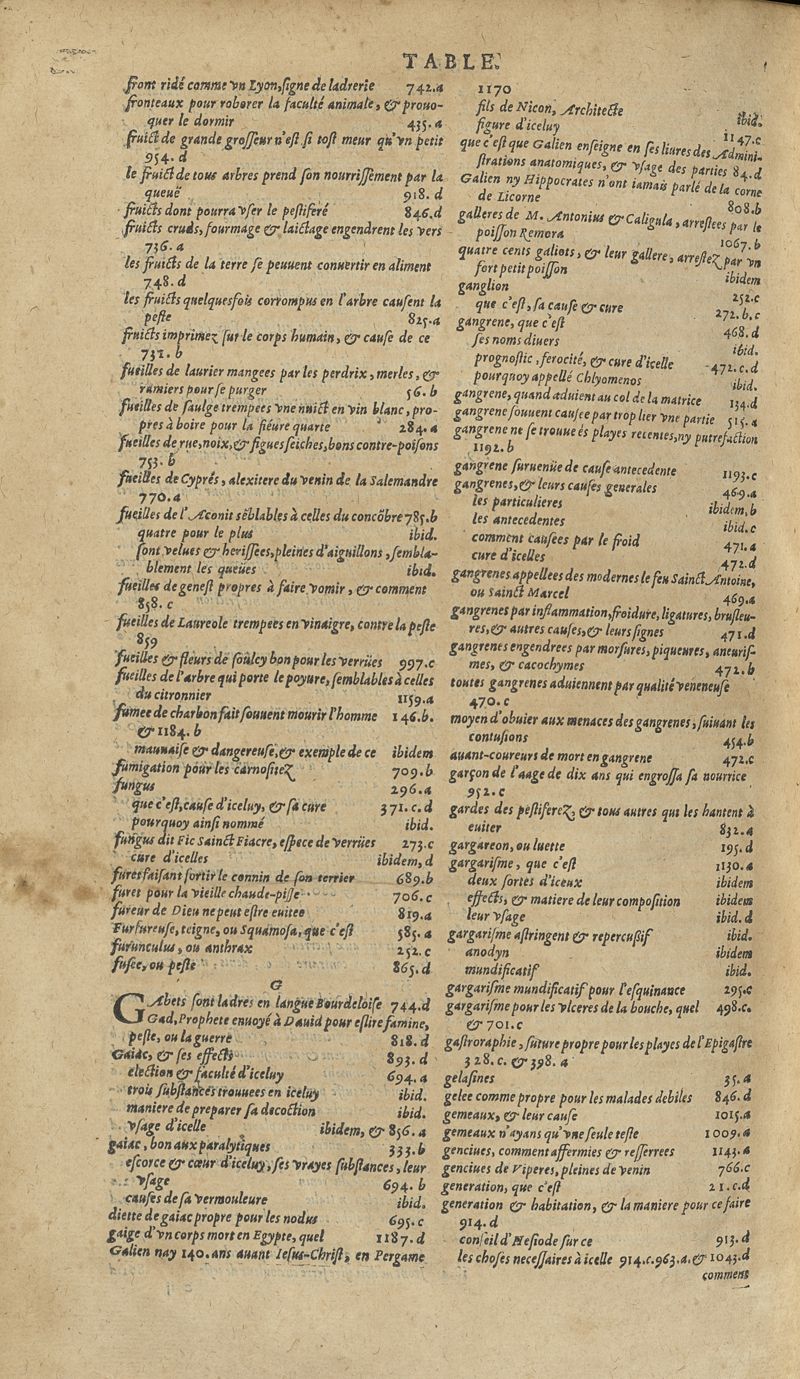 TABLE.
front ridé comme vn Lyon, signe de ladrerie 742.a
fronteaux pour roborer la faculté animale, & prouo-
quer le dormir 435.a
fruict de grande grosseur n'est si tost meur qu'vn petit
954.d
le fruict de tous arbres prend son nourrissement par la
queuë 918.d
fruicts dont pourra vser le pestiferé 846.d
fruicts cruds, fourmage & laictage engendrent les vers
736.a
les fruicts de la terre se peuuent conuertir en aliment
748.d
les fruicts quelquesfois corrompus en l'arbre causent la
peste 825.a
fruicts imprimez sur le corps humain, & cause de ce
731.b
fueilles de laurier mangees par les perdrix, merles, &
ramiers pour se purger 56.b
fueilles de saulge trempees vne nuict en vin blanc, pro-
pres à boire pour la fiéure quarte 284.a
fueilles de rue, noix, & figues seiches, bons contre-poisons
753.b
fueilles de Cyprés, alexitere du venin de la Salemandre
770.a
fueilles de l'Aconit sēblables à celles du concōbre 785.b
quatre pour le plus ibid.
sont velues & herissées, pleines d'aiguillons, sembla-
blement les queües ibid.
fueilles de genest propres à faire vomir, & comment
858.c
fueilles de Laureole trempees en vinaigre, contre la peste
859
fueilles & fleurs de soulcy bon pour les verrües 997.c
fueilles de l'arbre qui porte le poyure, semblables à celles
du citronnier 1159.a
fumee de charbon fait souuent mourir l'homme 146.b.
& 1184.b
mauuaise & dangereuse, & exemple de ce ibidem
fumigation pour les carnositez 709.b
fungus 296.a
que c'est, cause d'iceluy, & sa cure 371.c.d
pourquoy ainsi nommé ibid.
fungus dit Fic Sainct Fiacre, espece de verrües 273.c
cure d'icelles ibidem, d
furet faisant sortir le connin de son terrier 689.b
furet pour la vieille chaude-pisse 706.c
fureur de Dieu ne peut estre euitee 819.a
Furfureuse, teigne, ou Squamosa, que c'est 585.a
furunculus, ou anthrax 252.c
fusée, ou peste 865.d
G
GAbets sont ladres en langue Bourdeloise 744.d
Gad, Prophete enuoyé à Dauid pour eslire famine,
peste, ou la guerre 818.d
Gaiac, & ses effects 893.d
election & faculté d'iceluy 694.a
trois substances trouuees en iceluy ibid.
maniere de preparer sa decoction ibid.
vsage d'icelle ibidem, & 856.a
gaiac, bon aux paralytiques 333.b
escorce & cœur d'iceluy, ses vrayes substances, leur
vsage 694.b
causes de sa vermouleure ibid.
diette de gaiac propre pour les nodus 695.c
gaige d'vn corps mort en Egypte, quel 1187.d
Galien nay 140. ans auant Iesus-Christ, en Pergame
1170
fils de Nicon, Architecte ibid.
figure d'iceluy 1147.c
que c'est que Galien enseigne en ses liures des Admini-
strations anatomiques, & vsage des parties 84.d
Galien ny Hippocrates n'ont iamais parlé de la corne
de Licorne 808.b
galleres de M. Antonius & Caligula, arrestees par le
poisson Remora 1067.b
quatre cents galiots, & leur gallere, arrestez par vn
fort petit poisson ibidem
ganglion 252.c
que c'est, sa cause & cure 272.b.c
gangrene, que c'est 468.d
ses noms diuers ibid.
prognostic, ferocité, & cure d'icelle 472.c.d
pourquoy appellé Chlyomenos ibid.
gangrene, quand aduient au col de la matrice 134.d
gangrene souuent causee par trop lier vne partie 515.a
gangrene ne se trouue és playes recentes, ny putrefaction
1192.b
gangrene suruenüe de cause antecedente 1193.c
gangrenes, & leurs causes generales 469.a
les particulieres ibidem, b
les antecedentes ibid. c
comment causees par le froid 471.a
cure d'icelles 472.d
gangrenes appellees des modernes le feu Sainct Antoine,
ou Sainct Marcel 469.a
gangrenes par inflammation, froidure, ligatures, brusleu-
res, & autres causes, & leurs signes 471.d
gangrenes engendrees par morsures, piqueures, aneuris-
mes, & cacochymes 472.b
toutes gangrenes aduiennent par qualité veneneuse
470.c
moyen d'obuier aux menaces des gangrenes, suiuant les
contusions 454.b
auant-coureurs de mort en gangrene 472.c
garçon de l'aage de dix ans qui engrossa sa nourrice
952.c
gardes des pestiferez, & tous autres qui les hantent à
euiter 832.a
gargareon, ou luette 195.d
gargarisme, que c'est 1130.a
deux sortes d'iceux ibidem
effects, & matiere de leur composition ibidem
leur vsage ibid. d
gargarisme astringent & repercussif ibid.
anodyn ibidem
mundificatif ibid.
gargarisme mundificatif pour l'esquinance 295.c
gargarisme pour les vlceres de la bouche, quel 498.c.
& 701.c
gastroraphie, suture propre pour les playes de l'Epigastre
328.c. & 398.a
gelasines 35.a
gelee comme propre pour les malades debiles 846.d
gemeaux, & leur cause 1015.a
gemeaux n'ayans qu'vne seule teste 1009.a
genciues, comment affermies & resserrees 1143.a
genciues de Viperes, pleines de venin 766.c
generation, que c'est 21.c.d
generation & habitation, & la maniere pour ce faire
914.d
conseil d'Hesiode sur ce 913.d
les choses necessaires à icelle 914.c.963.a.& 1043.d
comment